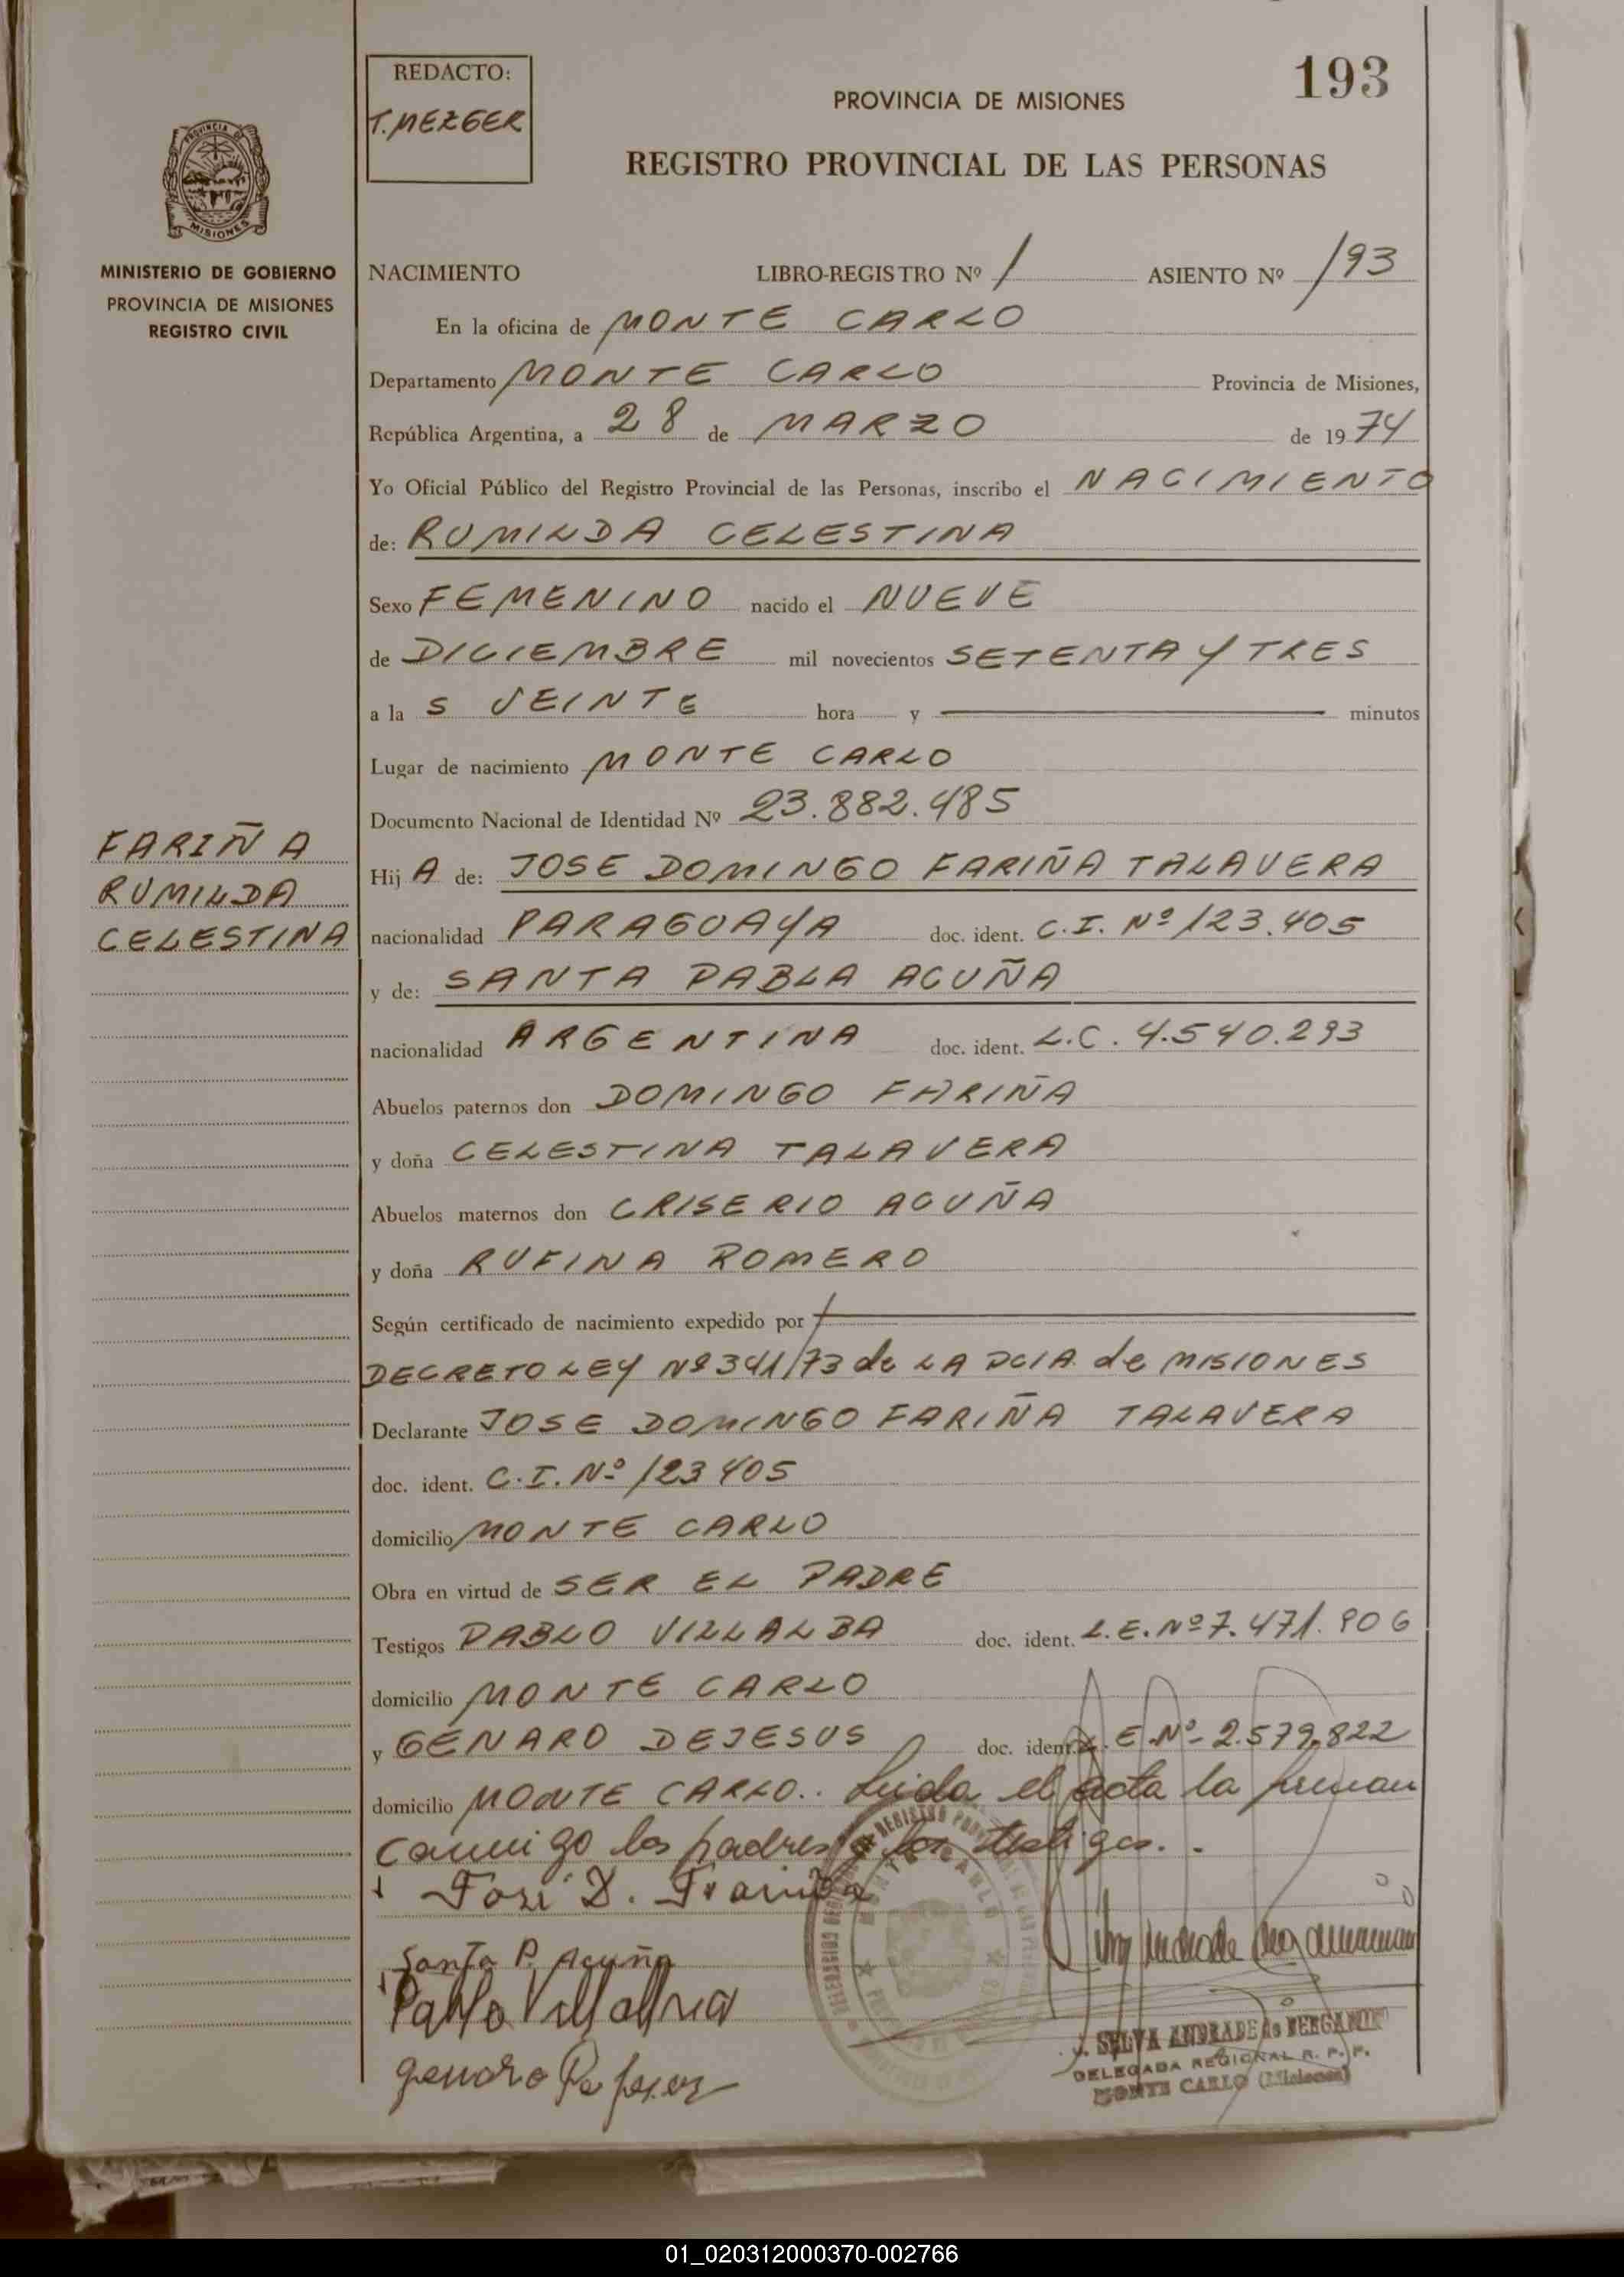 193
REDACTO:
T. MEZGER
PROVINCIA DE MISIONES
REGISTRO PROVINCIAL DE LAS PERSONAS
PROVINCIA DE
MISIONES
MINISTERIO DE GOBIERNO
PROVINCIA DE MISIONES
REGISTRO CIVIL
NACIMIENTO LIBRO-REGISTRO Nº 1 ASIENTO Nº 193
En la oficina de MONTE CARLO
Departamento MONTE CARLO Provincia de Misiones,
República Argentina, a 28 de MARZO de 1974
Yo Oficial Público del Registro Provincial de las Personas, inscribo el NACIMIENTO
de: ROMILDA CELESTINA
Sexo FEMENINO nacido el NUEVE
de DICIEMBRE mil novecientos SETENTA Y TRES
a la S VEINTE hora y minutos
Lugar de nacimiento MONTE CARLO
Documento Nacional de Identidad Nº 23.882.485
FARIÑA
ROMILDA
CELESTINA
Hij A de: JOSE DOMINGO FARIÑA TALAVERA
nacionalidad PARAGUAYA doc. ident. C.I. Nº 123.405
y de: SANTA PABLA ACUÑA
nacionalidad ARGENTINA doc. ident. L.C. 4.540.293
Abuelos paternos don DOMINGO FARIÑA
y doña CELESTINA TALAVERA
Abuelos maternos don CRISERIO ACUÑA
y doña RUFINA ROMERO
Según certificado de nacimiento expedido por
DECRETO LEY Nº 341/73 de LA PCIA. de MISIONES
Declarante JOSE DOMINGO FARIÑA TALAVERA
doc. ident. C.I. Nº 123405
domicilio MONTE CARLO
Obra en virtud de SER EL PADRE
Testigos PABLO VILLALBA doc. ident. L.E. Nº 7.471.906
domicilio MONTE CARLO
y GENARO DEJESUS doc. ident. L.E. Nº 2.579.822
domicilio MONTE CARLO.. Leida el acta la firman
conmigo los padres y los testigos.-
José D. Fariña
Santa P. Acuña
Pablo Villalba
SELVA ANDRADE de BERGAMIN
DELEGADA REGIONAL R. P. P.
MONTE CARLO (Misiones)
01_020312000370-002766